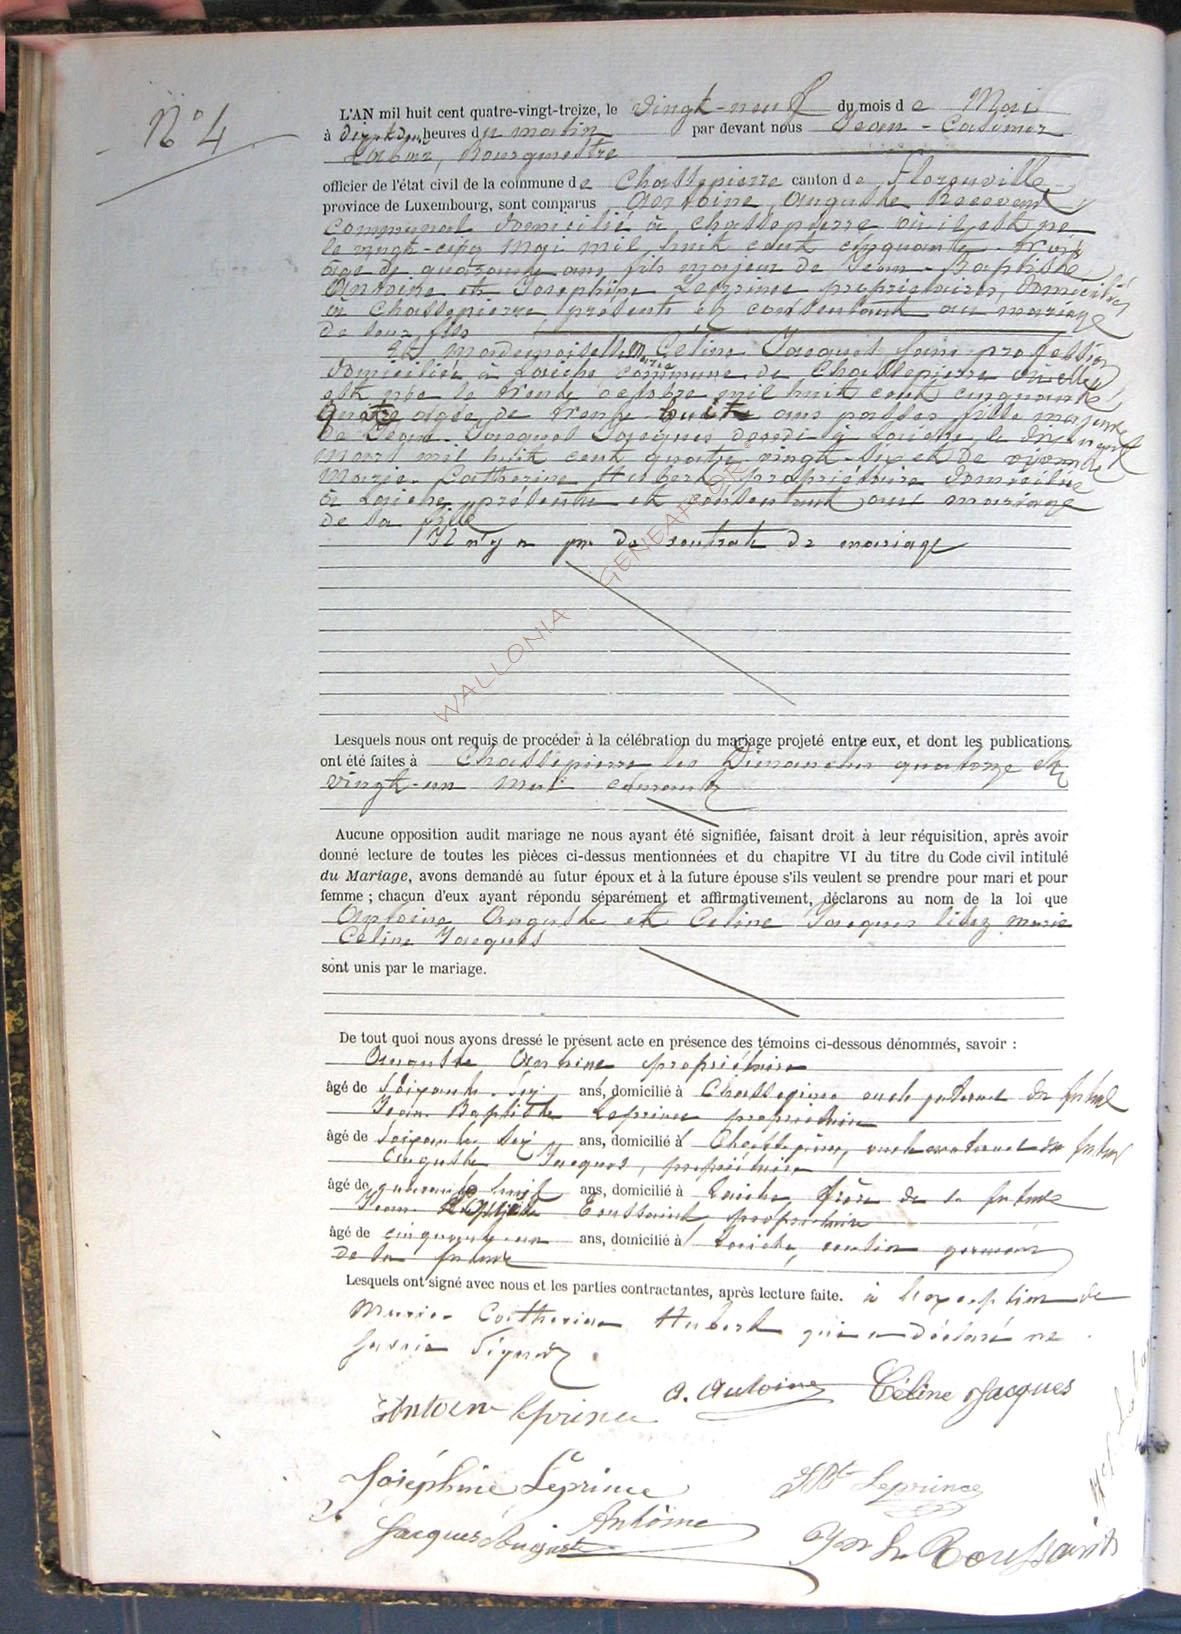 N° 4
L'AN mil huit cent quatre-vingt-treize, le vingt-neuf du mois de Mai
à dix heures du matin par devant nous Jean-Casimir
Bourgmestre
officier de l'état civil de la commune de Chassepierre canton de Florenville
province de Luxembourg, sont comparus Antoine, Auguste Receveur
communal domicilié à Chassepierre où il est né
le vingt-cinq Mai mil huit cent cinquante-trois
âgé de quarante ans, fils majeur de Jean-Baptiste
Antoine et Joséphine Leprince propriétaires, domiciliés
à Chassepierre présents et consentant au mariage
de leur fils
Et Mademoiselle Céline Jacques sans profession
domiciliée à Laiche commune de Chassepierre où elle
est née le trente octobre mil huit cent cinquante
quatre âgée de trente huit ans passés fille majeure
de Jean Jacques décédé à Laiche le dix neuf
Mars mil huit cent quatre-vingt-six et de
Marie-Catherine Hubert propriétaire domiciliée
à Laiche présente et consentant au mariage
de sa fille
Il n'y a pas de contrat de mariage
WALLONIA GENEAPAGE
Lesquels nous ont requis de procéder à la célébration du mariage projeté entre eux, et dont les publications
ont été faites à Chassepierre les Dimanches quatorze et
vingt-un Mai courant
Aucune opposition audit mariage ne nous ayant été signifiée, faisant droit à leur réquisition, après avoir
donné lecture de toutes les pièces ci-dessus mentionnées et du chapitre VI du titre du Code civil intitulé
du Mariage, avons demandé au futur époux et à la future épouse s'ils veulent se prendre pour mari et pour
femme ; chacun d'eux ayant répondu séparément et affirmativement, déclarons au nom de la loi que
Antoine Auguste et Celine Jacques lisez marie
Celine Jacques
sont unis par le mariage.
De tout quoi nous avons dressé le présent acte en présence des témoins ci-dessous dénommés, savoir :
Auguste Antoine propriétaire
âgé de soixante-six ans, domicilié à Chassepierre oncle paternel du futur
Jean Baptiste Leprince propriétaire
âgé de soixante six ans, domicilié à Chassepierre, oncle maternel du futur
Auguste Jacques, propriétaire
âgé de quarante huit ans, domicilié à Laiche, frère de la future
Jean Toussaint, propriétaire
âgé de cinquante-un ans, domicilié à Laiche, cousin germain
de la future
Lesquels ont signé avec nous et les parties contractantes, après lecture faite. à l'exception de
Marie-Catherine Hubert qui a déclaré ne
savoir signer
A. Antoine Céline Jacques
Antoine Leprince
Joséphine Leprince JBte Leprince
Antoine
Jacques Auguste Toussaint